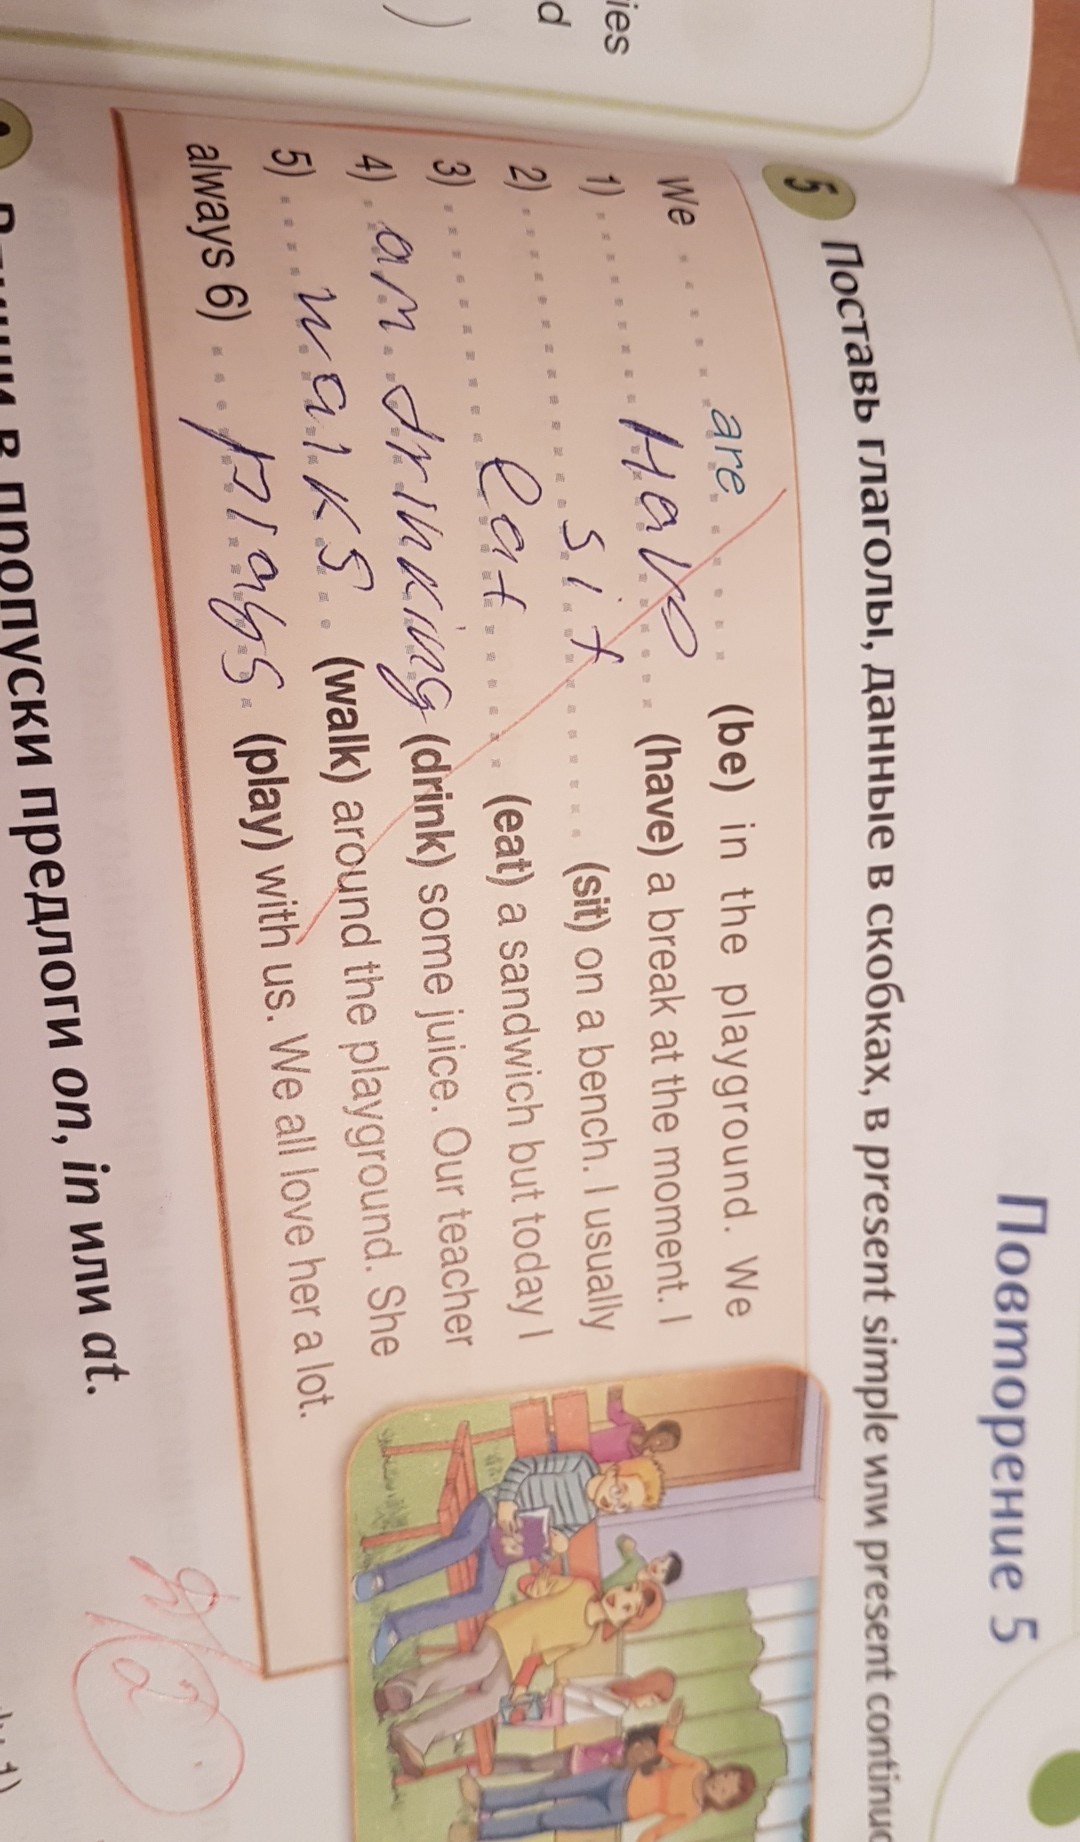 ies
d
)
Повторение 5
5 Поставь глаголы, данные в скобках, в present simple или present continuo
We ... are ... (be) in the playground. We
1) ... Have ... (have) a break at the moment. I
2) ... sit ... (sit) on a bench. I usually
3) ... eat ... (eat) a sandwich but today I
4) . am drinking (drink) some juice. Our teacher
5) ... walks .. (walk) around the playground. She
always 6) ... plays . (play) with us. We all love her a lot.
в пропуски предлоги on, in или at.
2